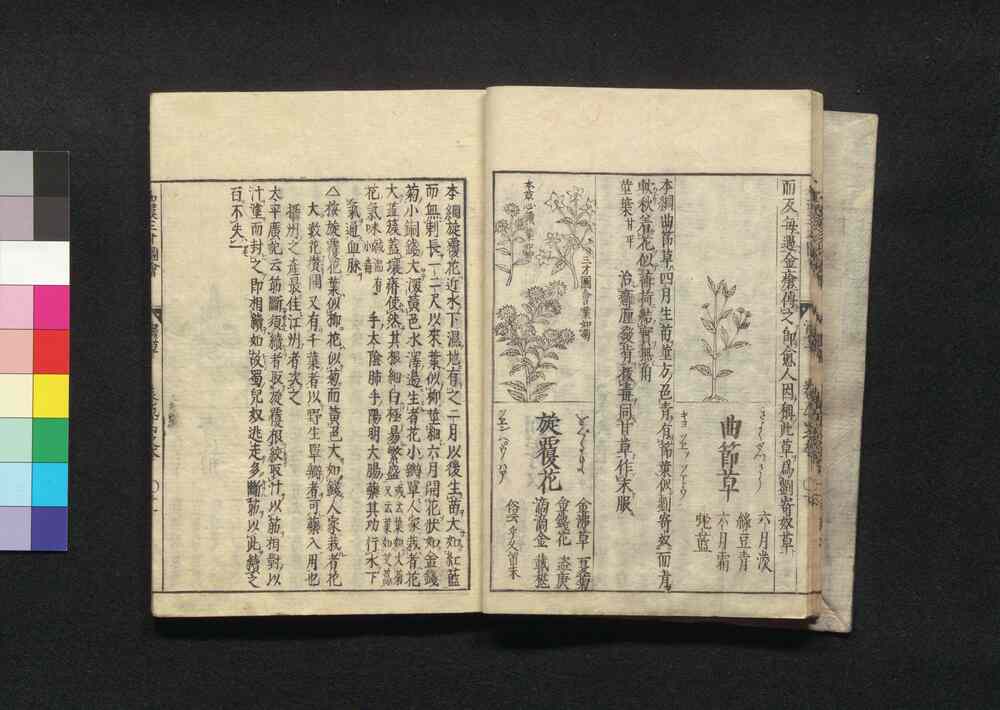 而又每遇金瘡傅之即愈人因稱此草爲劉寄奴草
曲節草
六月淩
綠豆青
六月霜
蛇藍
本綱曲節草四月生苗莖方色青有節葉似劉寄奴而青
軟秋著花似薄荷結實無角
莖葉甘平
治癰腫發背攻毒同甘草作末服
三才圖會葉如菊
旋覆花
金沸草
金錢花
滴滴金
盜庚
夏菊
戴椹
俗云
本綱旋覆花近水下濕地有之二月以後生苗大如紅藍
而無刺長一二尺以來葉似柳莖細六月開花狀如金錢
菊小銅錢大深黃色水澤邊生者花小瓣單人家栽者花
大蕊簇蓋壤瘠使然其根細白極易繁盛
花氣味鹹溫有小毒
手太陰肺手陽明大腸藥其功行水下
氣通血脉
△按旋覆花葉似柳花似菊而黃色大如錢人家栽者花
大數花攢開又有千葉者以野生單瓣者可藥入用也
播州之產最佳江州者次之
太平廣記云筋斷須續者取旋覆根絞取汁以筋相對以
汁塗而封之即相續如故蜀兒奴逃走多斷筋以此續之
百不失一